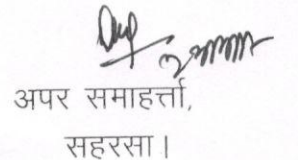 अपर समाहर्त्ता,
सहरसा।